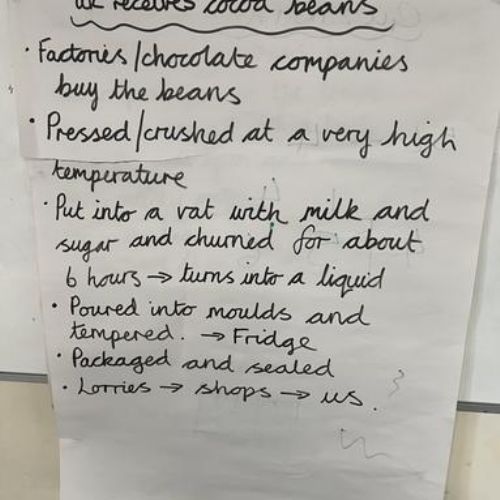 UK receives cocoa beans
• Factories/chocolate companies
buy the beans
• Pressed/crushed at a very high
temperature
• Put into a vat with milk and
sugar and churned for about
6 hours → turns into a liquid
• Poured into moulds and
tempered. → Fridge
• Packaged and sealed
• Lorries → shops → us.